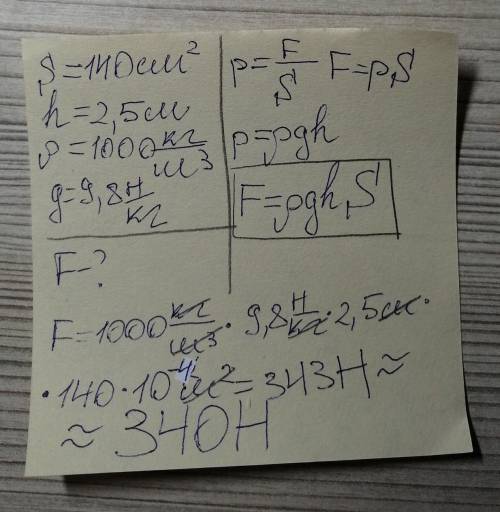 S=140см²
h=2,5м
ρ=1000 кг/м³
g=9,8 Н/кг
F-?
p=F/S F=pS
p=ρgh
F=ρghS
F=1000 кг/м³ · 9,8 Н/кг · 2,5м ·
· 140 · 10⁻⁴ м² = 343Н ≈
≈ 340Н